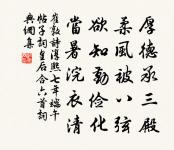 厚德承三殿
柔風被八弦
欲知勤儉化
當暑浣衣清
崔敦詩淳熙七年端午
帖子詞皇后合六首詞
典網集